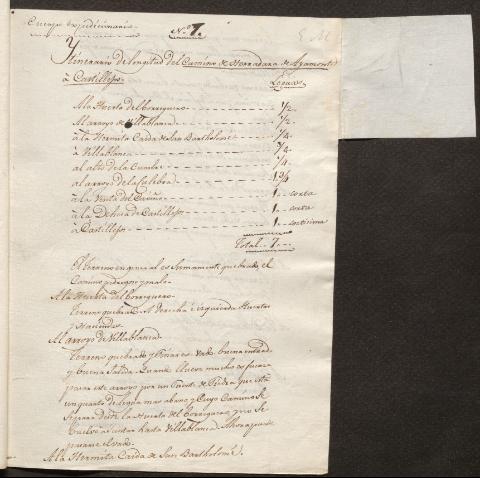 Cuerpo expedicionario
N.º 7
E. M.
Ytinerario de longitud del Camino de Herradura de Ayamonte
à Castillejos
Leguas
A la Huerta del Borreguero 1/2
Al arroyo de Villablanca 1/2
à la Hermita Caida de San Bartholomé 1/4
à Villablanca 3/4
al alto de la Cumbre 1/4
al arroyo de la Culebra 1 3/4
à la Venta del 1 corta
à la Dehesa de Castillejos 1 corta
à Castillejos 1 cortisima
Total 7
El terreno en general es sumamente quebrado, el
Camino pedregoso y malo
A la Huerta del Borreguero
Terreno quebrado. A derecha è izquierda Huertas
y Haciendas
Al arroyo de Villablanca
Terreno quebrado y Pinares. Vado buena entrada
y buena salida. Quando llueve mucho es fuerza
pasar este arroyo por un Puente de Piedra que está
un quarto de legua mas abajo y cuyo Camino se
separa desde la Huerta del Borreguero y no se
buelve à juntar hasta Villablanca. Ahora puede
pasarse el vado.
A la Hermita Caida de San Bartholomé.